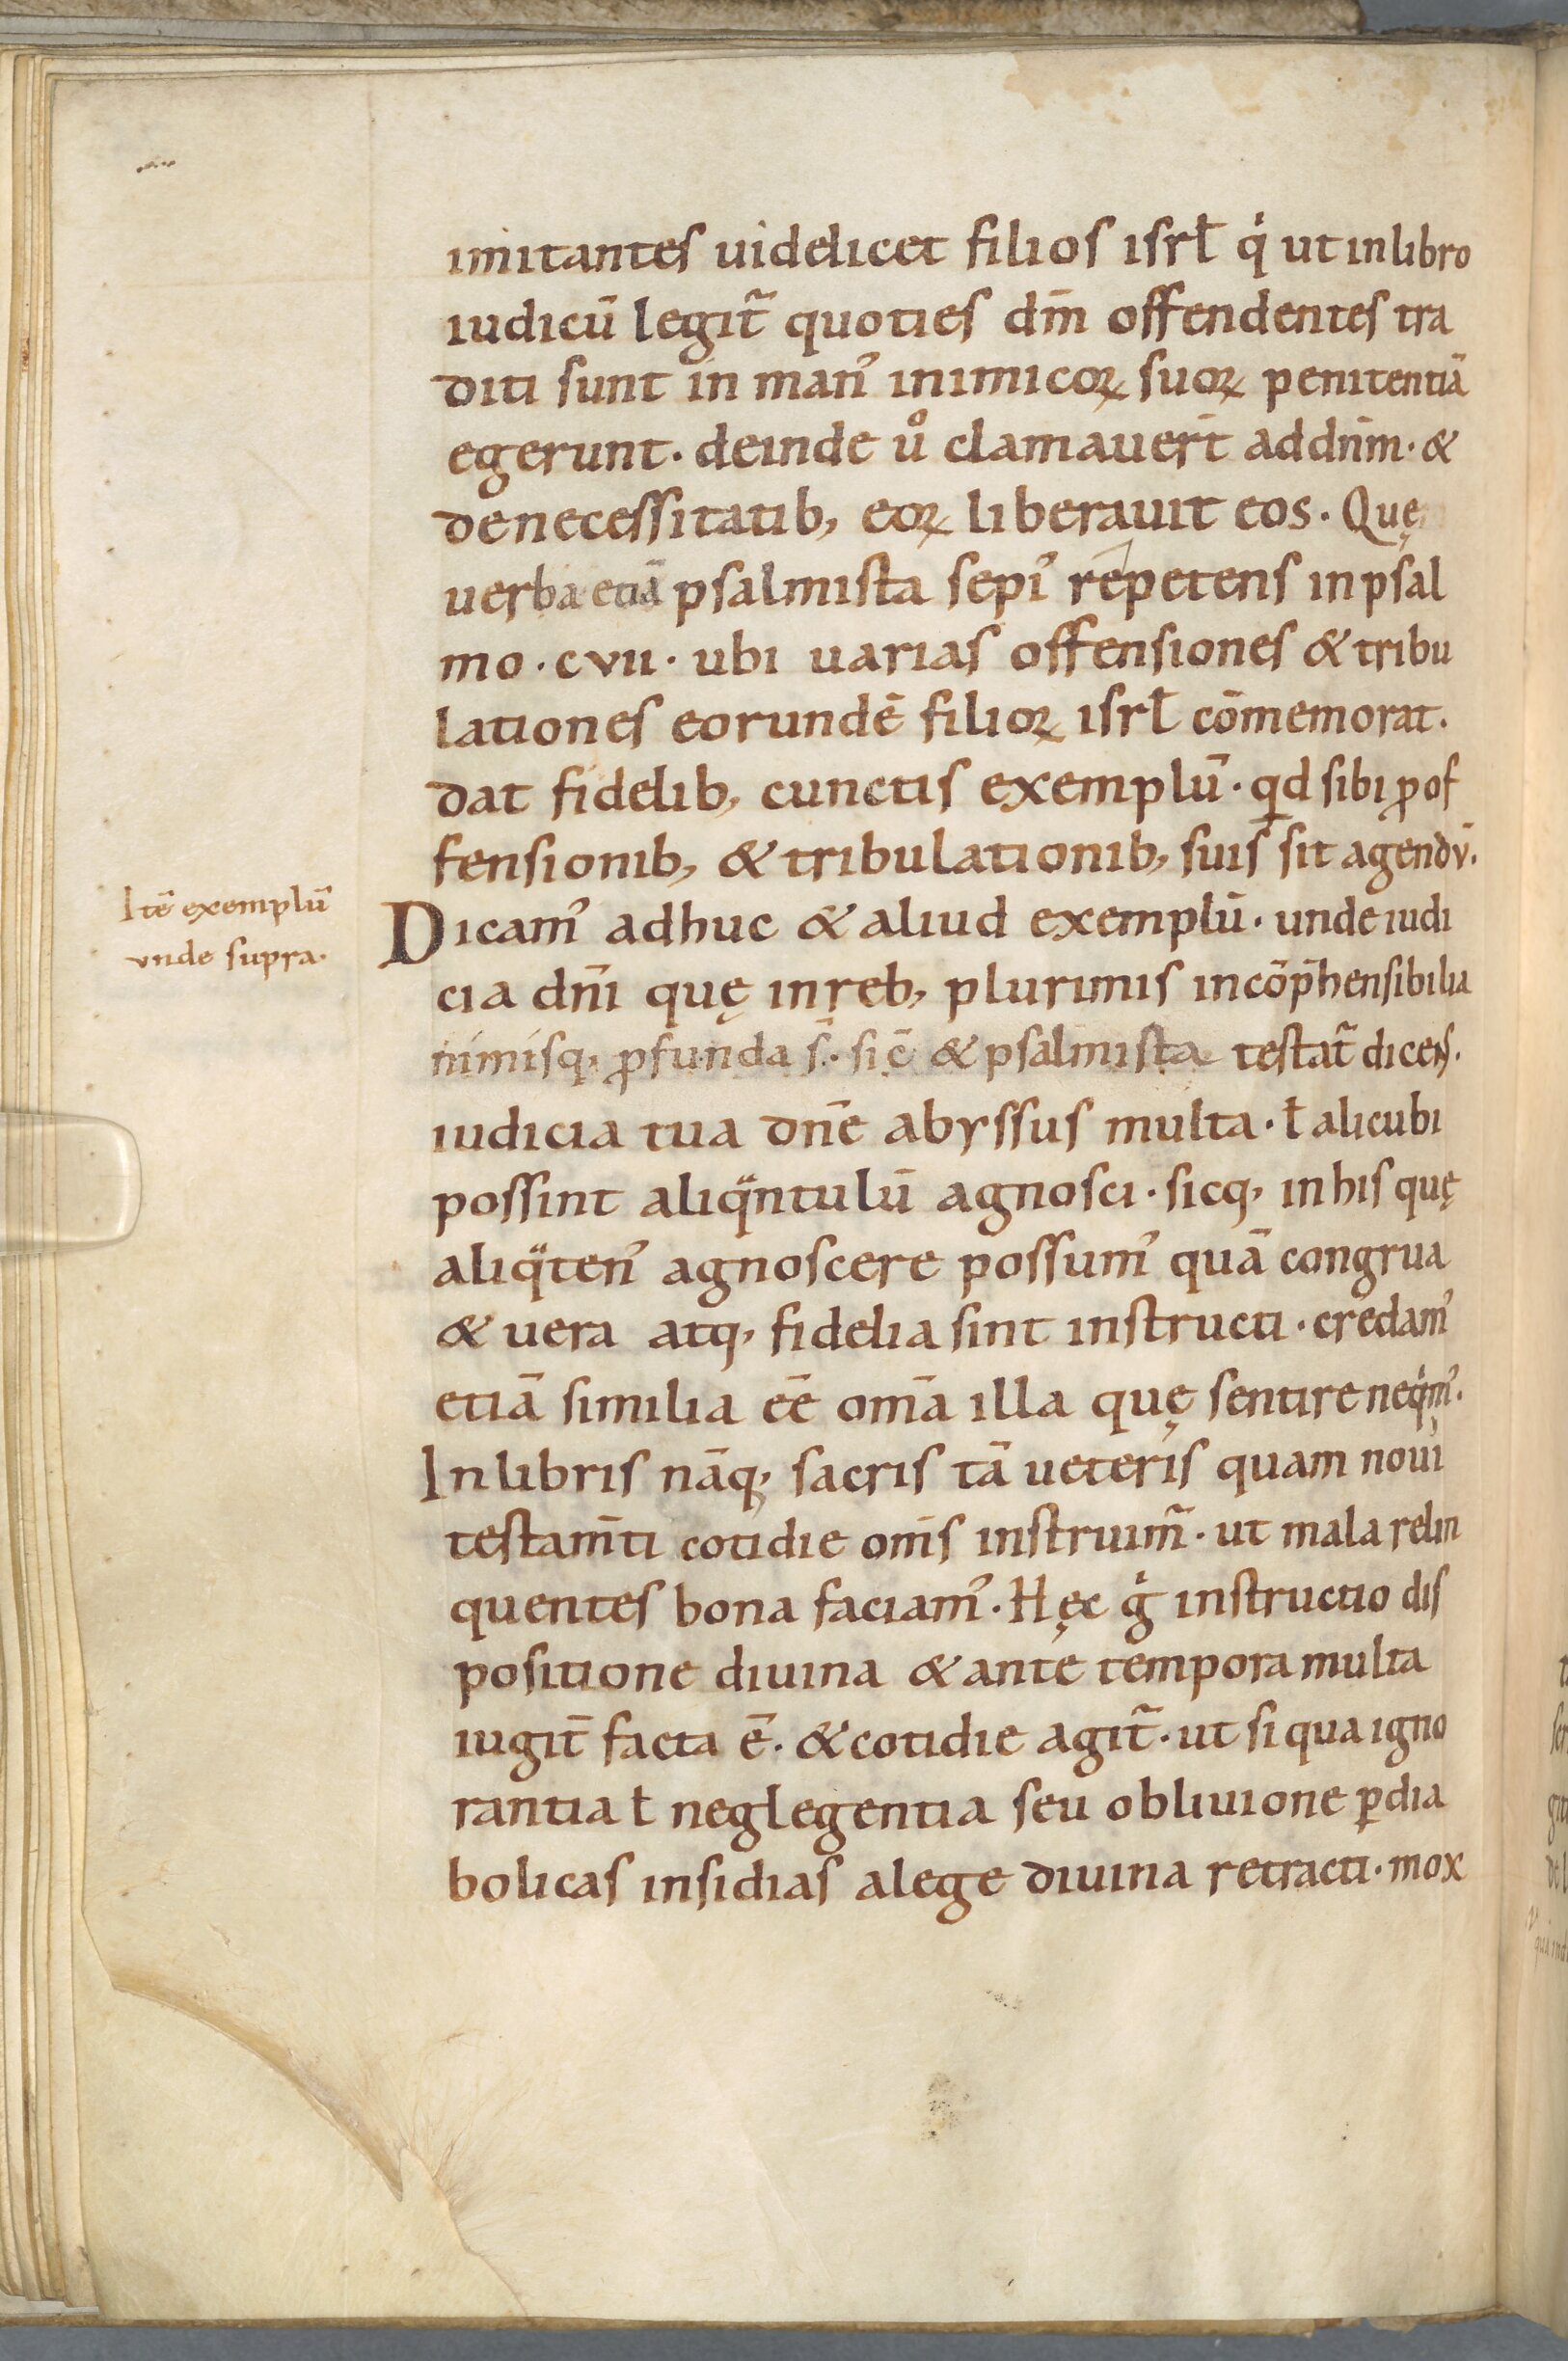 imitantes uidelicet filios isrł qͥ ut in libro
iudicū legit̄ quoties dm̄ offendentes tra
diti sunt in man᾿ inimicoꝝ suoꝝ penitentiā
egerunt· deinde uͦ clamauer̄t ad dn̄m· &
de necessitatib; eoꝝ liberauit eos· Quę
uerba etiā psalmista sepi᾿ repetens in psal
mo · cvii · ubi uarias offensiones & tribu
lationes eorundē filioꝝ isrł cōmemorat·
dat fidelib; cunctis exemplū· qd sibi ꝓ of
fensionib; & tribulationib; suis sit agendv̄·
Itē exemplū
vnde supra·
Dicam᾿ adhuc & aliud exemplū· unde iudi
cia dn̄i quę in reb; plurimis incōp̄hensibilia
nimisq; ꝓfunda s̄· sic̄ & psalmista testat̄ dicens·
iudicia tua dn̄e abyssus multa· ł alicubi
possint aliqͣntulū agnosci· sicq; in his quę
aliqͣten᾿ agnoscere possum᾿ quā congrua
& uera atq; fidelia sint instructi· credam᾿
etiā similia eē om̄a illa quę sentire neqͥm᾿·
In libris nāq; sacris tā ueteris quam noui
testam̄ti cotidie om̄s instruim̄· ut mala relin
quentes bona faciam᾿· Hęc gͥ instructio dis
positione diuina & ante tempora multa
iugit̄ facta ē· & cotidie agit̄· ut si qua igno
rantia ł neglegentia seu obliuione ꝑ dia
bolicas insidias a lege diuina retracti· mox